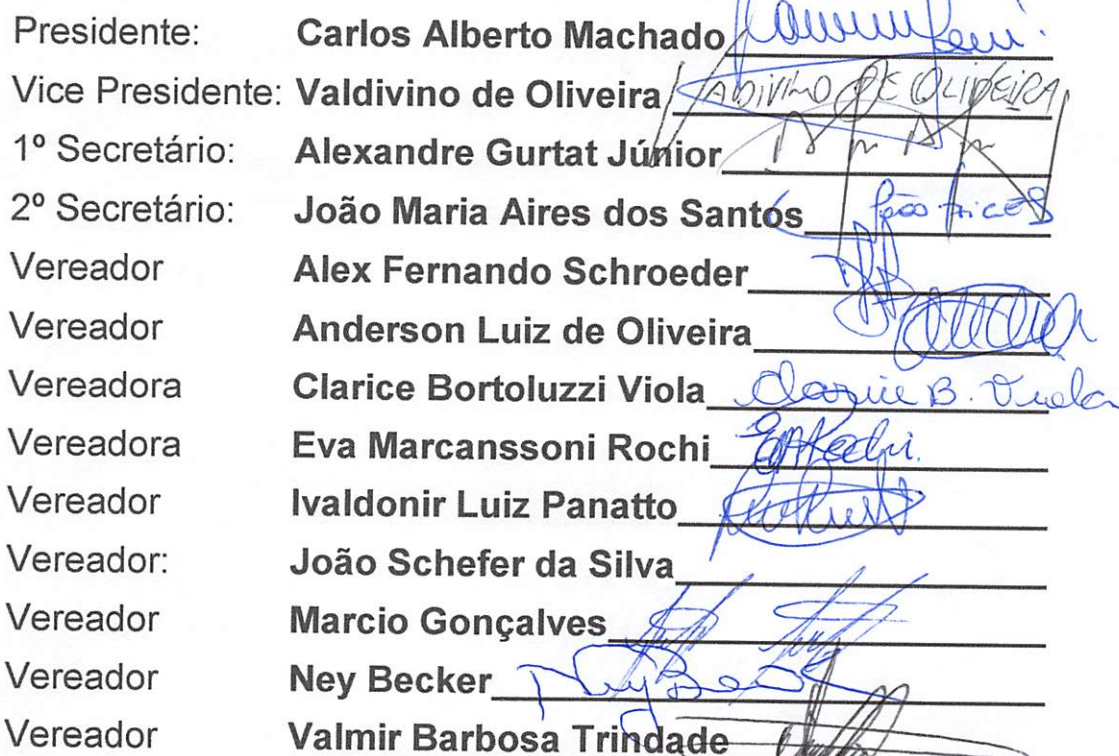 Presidente: Carlos Alberto Machado
Vice Presidente: Valdivino de Oliveira VALDIVINO DE OLIVEIRA
1º Secretário: Alexandre Gurtat Júnior
2º Secretário: João Maria Aires dos Santos
Vereador Alex Fernando Schroeder
Vereador Anderson Luiz de Oliveira
Vereadora Clarice Bortoluzzi Viola Clarice B. Viola
Vereadora Eva Marcanssoni Rochi
Vereador Ivaldonir Luiz Panatto
Vereador: João Schefer da Silva
Vereador Marcio Gonçalves
Vereador Ney Becker Ney Becker
Vereador Valmir Barbosa Trindade